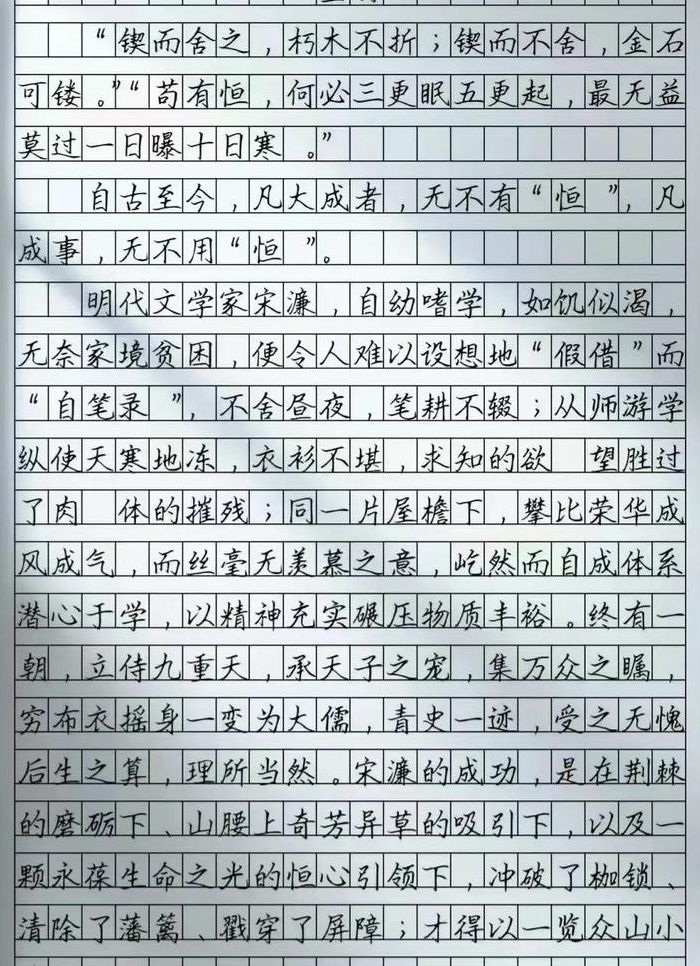 “锲而舍之，朽木不折；锲而不舍，金石
可镂。”“苟有恒，何必三更眠五更起，最无益
莫过一日曝十日寒。”
自古至今，凡大成者，无不有“恒”，凡
成事，无不用“恒”。
明代文学家宋濂，自幼嗜学，如饥似渴，
无奈家境贫困，便令人难以设想地“假借”而
“自笔录”，不舍昼夜，笔耕不辍；从师游学
纵使天寒地冻，衣衫不堪，求知的欲 望胜过
了肉 体的摧残；同一片屋檐下，攀比荣华成
风成气，而丝毫无羡慕之意，屹然而自成体系
潜心于学，以精神充实碾压物质丰裕。终有一
朝，立侍九重天，承天子之宠，集万众之瞩，
穷布衣摇身一变为大儒，青史一迹，受之无愧
后生之算，理所当然。宋濂的成功，是在荆棘
的磨砺下、山腰上奇芳异草的吸引下，以及一
颗永葆生命之光的恒心引领下，冲破了枷锁、
清除了藩篱、戳穿了屏障；才得以一览众山小